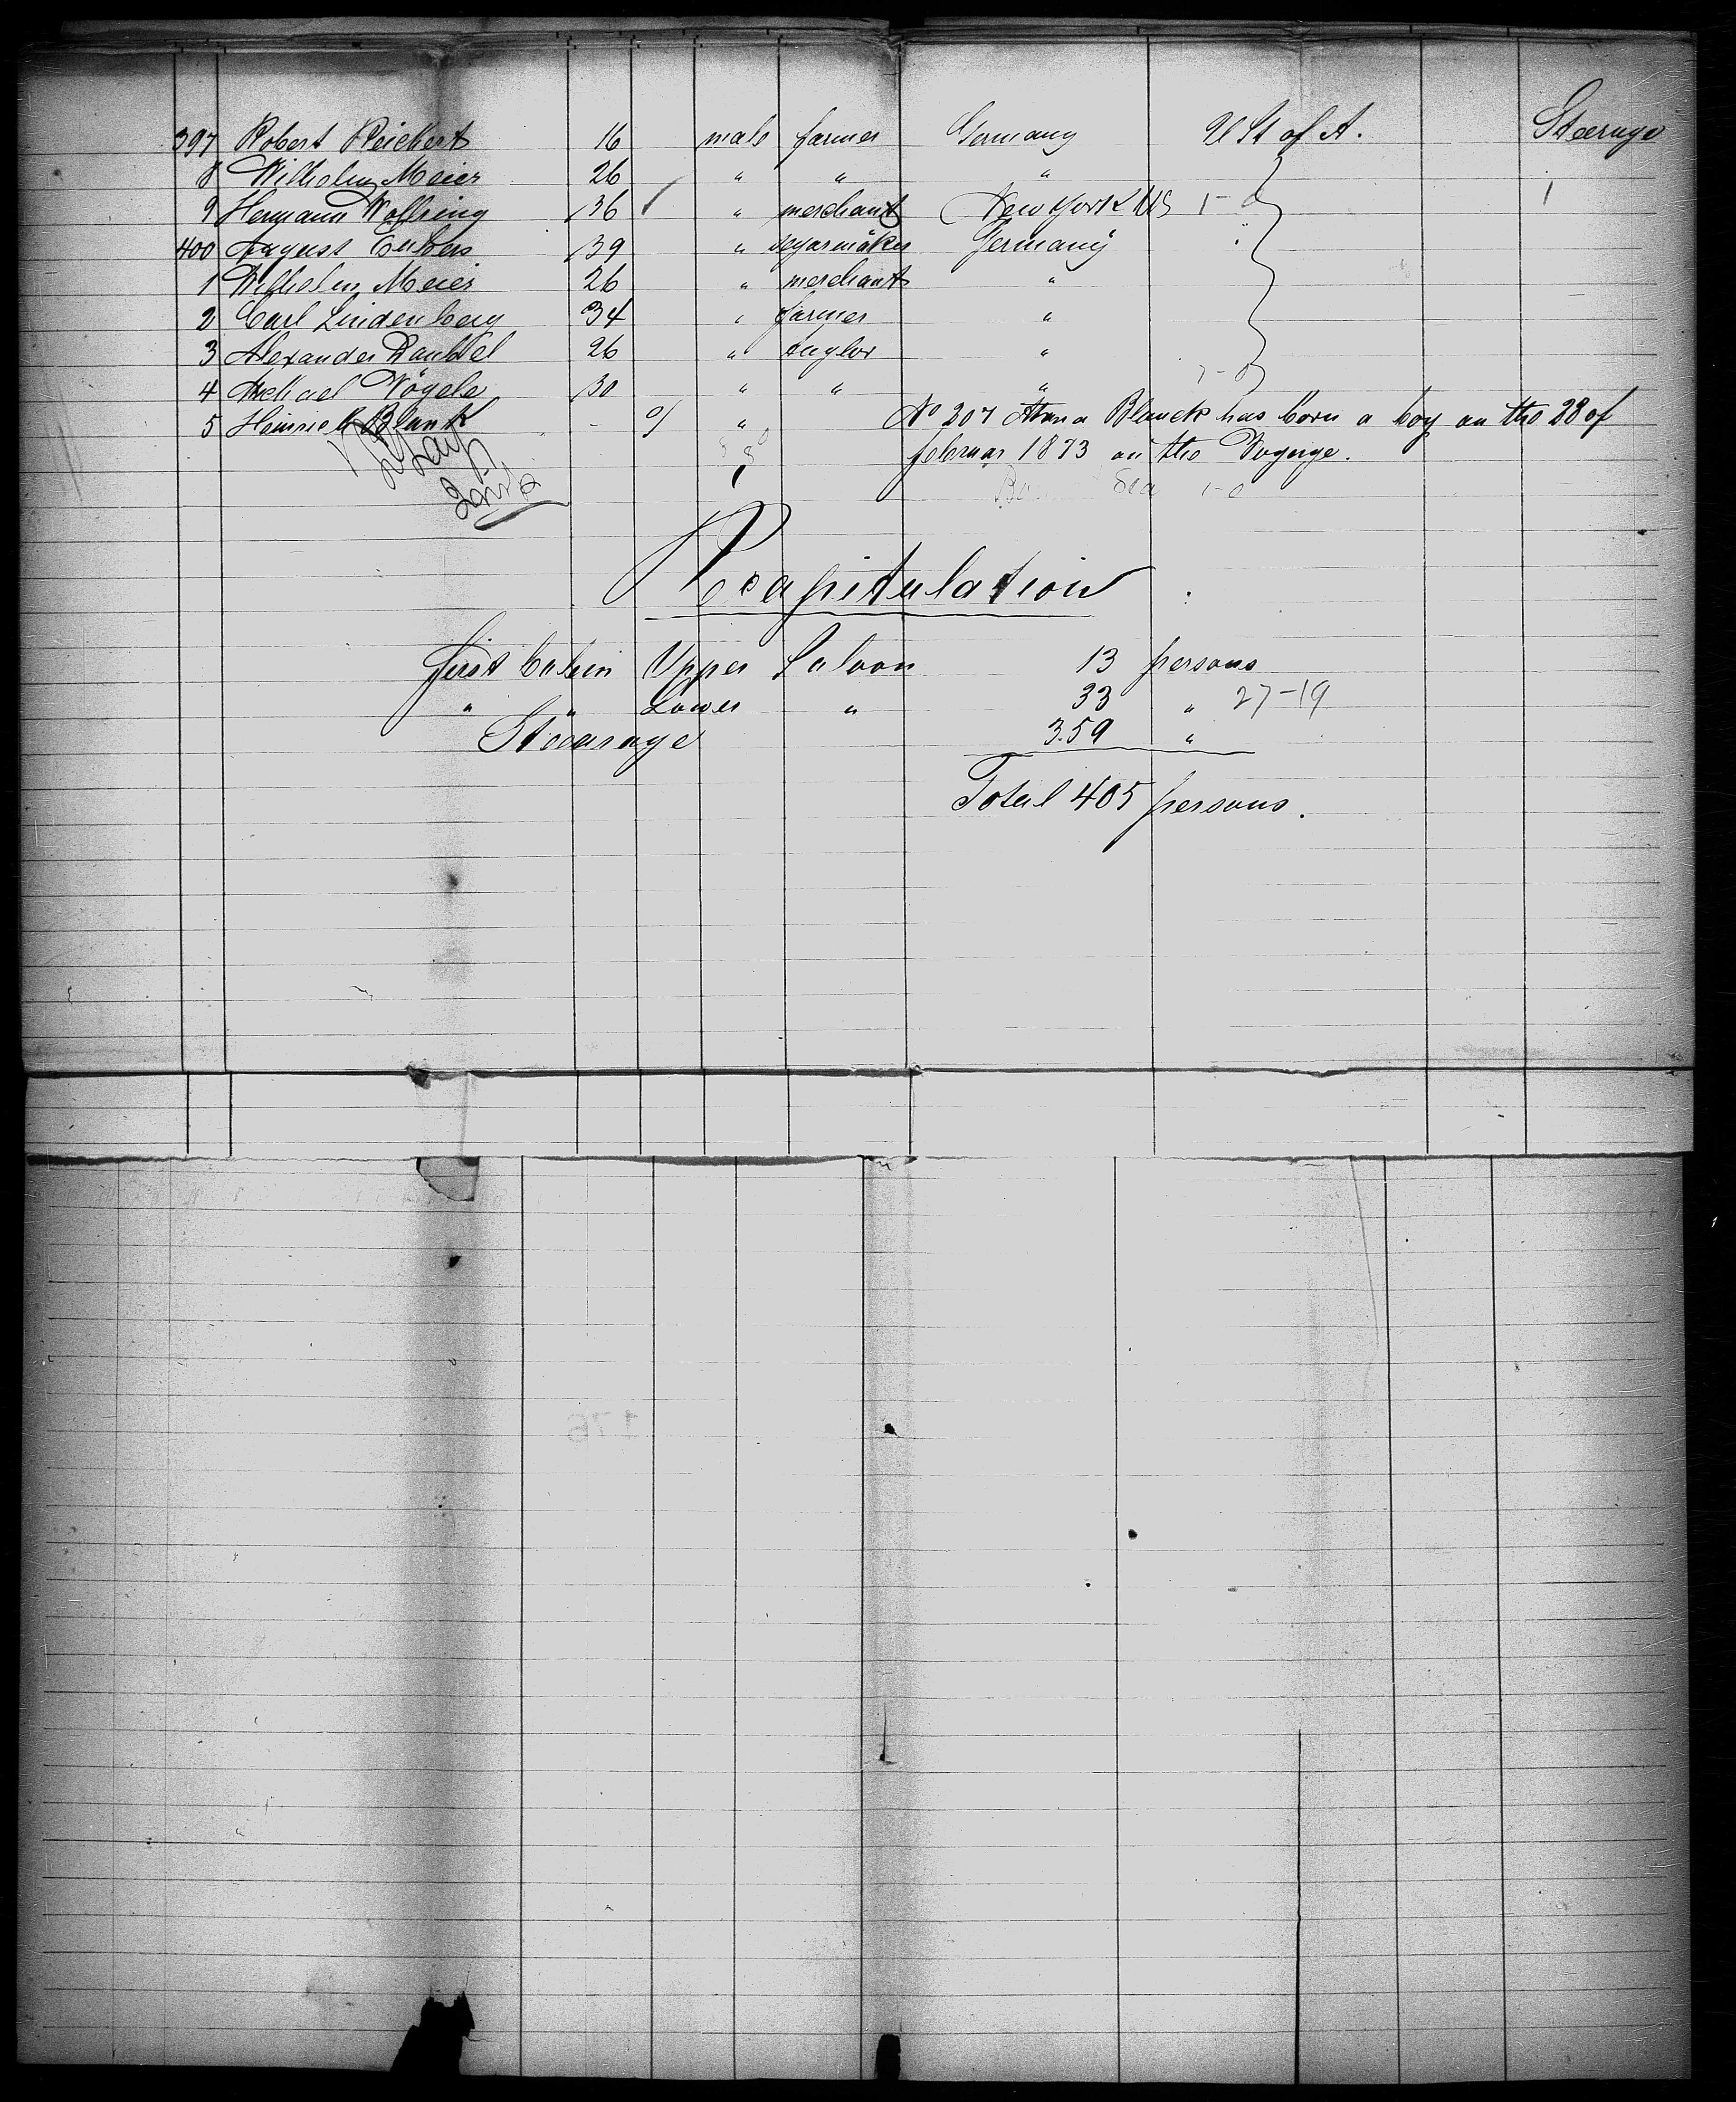 397 Robert Reichert 16 male farmer Germany U St of A. Steerage
8 Wilhelm Meier 26 " " "
9 Hermann Wolfsing 36 " merchant New York US 1-0 1
400 August 39 " segarmaker Germany
1 Wilhelm Meier 26 " merchant "
2 Carl Lindenberg 34 " farmer "
3 Alexander 26 " "
4 Michael Vögele 30 " " "
5 Heinrich Blank - " No 207 Anna Blanck has born a boy on the 28 of
februar 1873 on the Voyage.
Sea 1-0
Recapitulation
first Cabin Upper Saloon 13 persons
" " Lower " 33 " 27-19
Steerage 3.59 "
Total 405 persons.
176